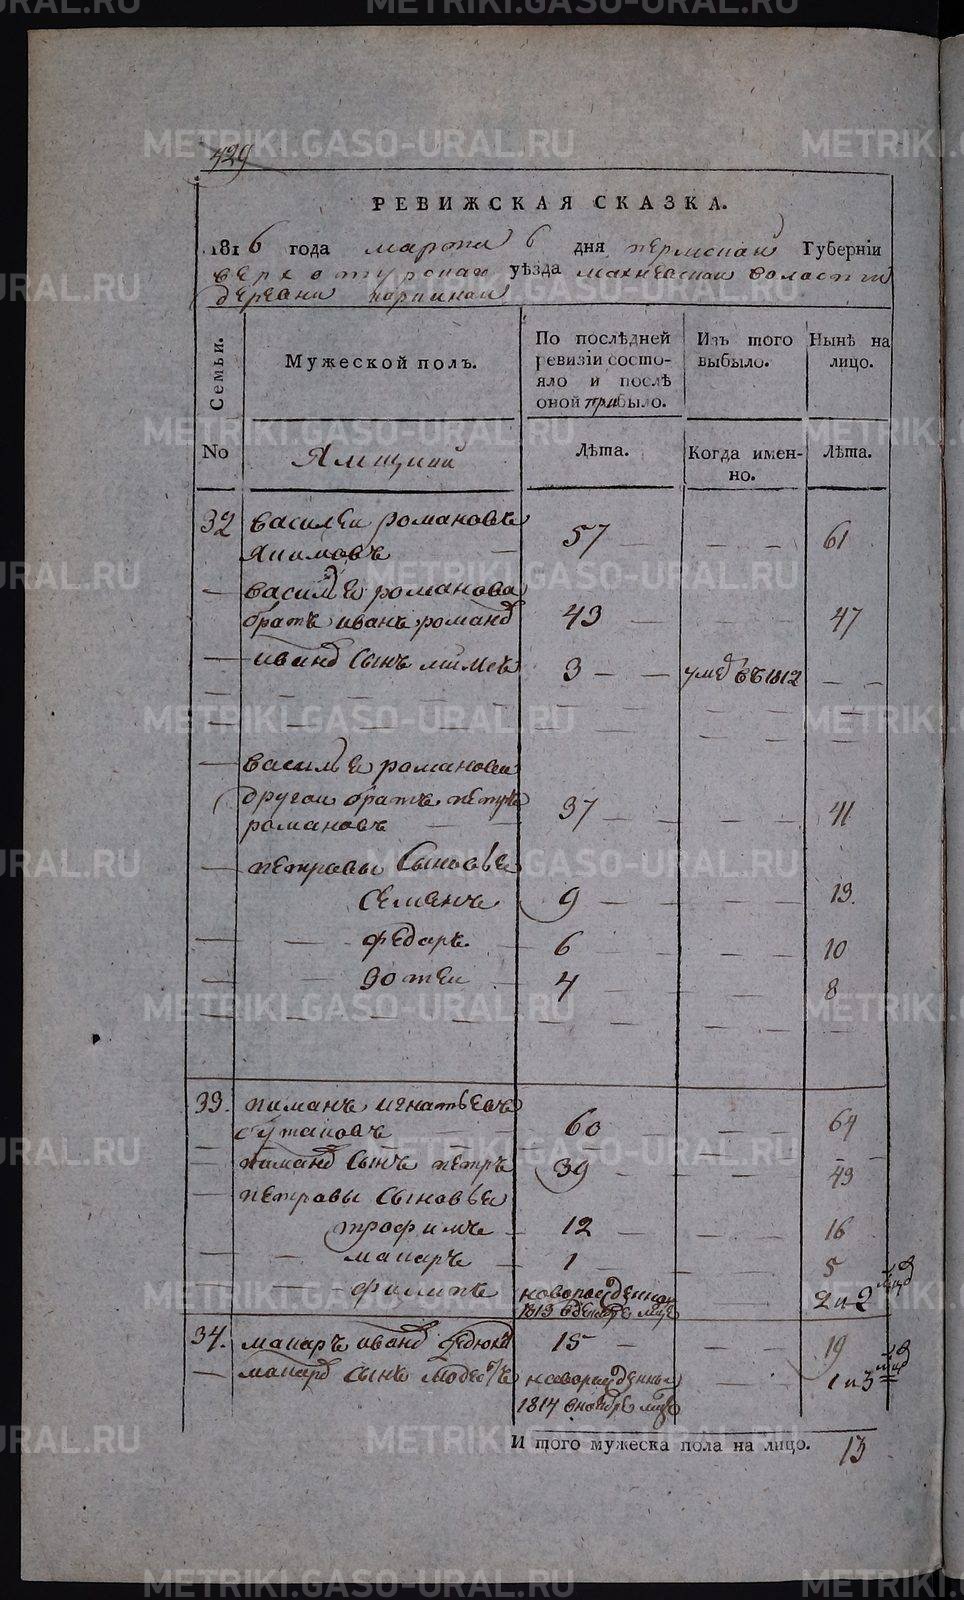 429
РЕВИЖСКАЯ СКАЗКА.
1816 года марта 6 дня пермскаи Губерніи
верхотурскаи уѣзда махневскаи воласти
деревни
Семьи.
Мужеской полъ.
По послѣдней ревизіи состояло и послѣ оной прибыло.
Изъ того выбыло.
Нынѣ на лицо.
No
Ямщики
Лѣта.
Когда именно.
Лѣта.
32 василеи романовъ
якимовъ 57 — — — 61
— василья романова
братъ иванъ романов 43 — — — 47
— иванов сынъ 3 — — умер въ 1812 — —
— василья романова
другои братъ петръ
романовъ 37 — — — 41
— петровы сыновья
семенъ 9 — — — 13.
— федаръ. 6 — — — 10
— фотеи 4 — — — 8
33. пиманъ игнатьевъ
сутаповъ 60 — — 64
— пиманов сынъ петръ 39 — — 43
— петровы сыновья
трофимъ 12 — — 16
— макаръ 1 — — 5
— филипъ новорожденнаи
1813 в декабре мце — 2 и 2 мцов
34. макаръ иванов федюкин 15 — — 19
— макаров сынъ модестъ новорожденныи
1814 в ноябре мце — 1 и 3 мцов
И того мужеска пола на лицо. 13
METRIKI.GASO-URAL.RU